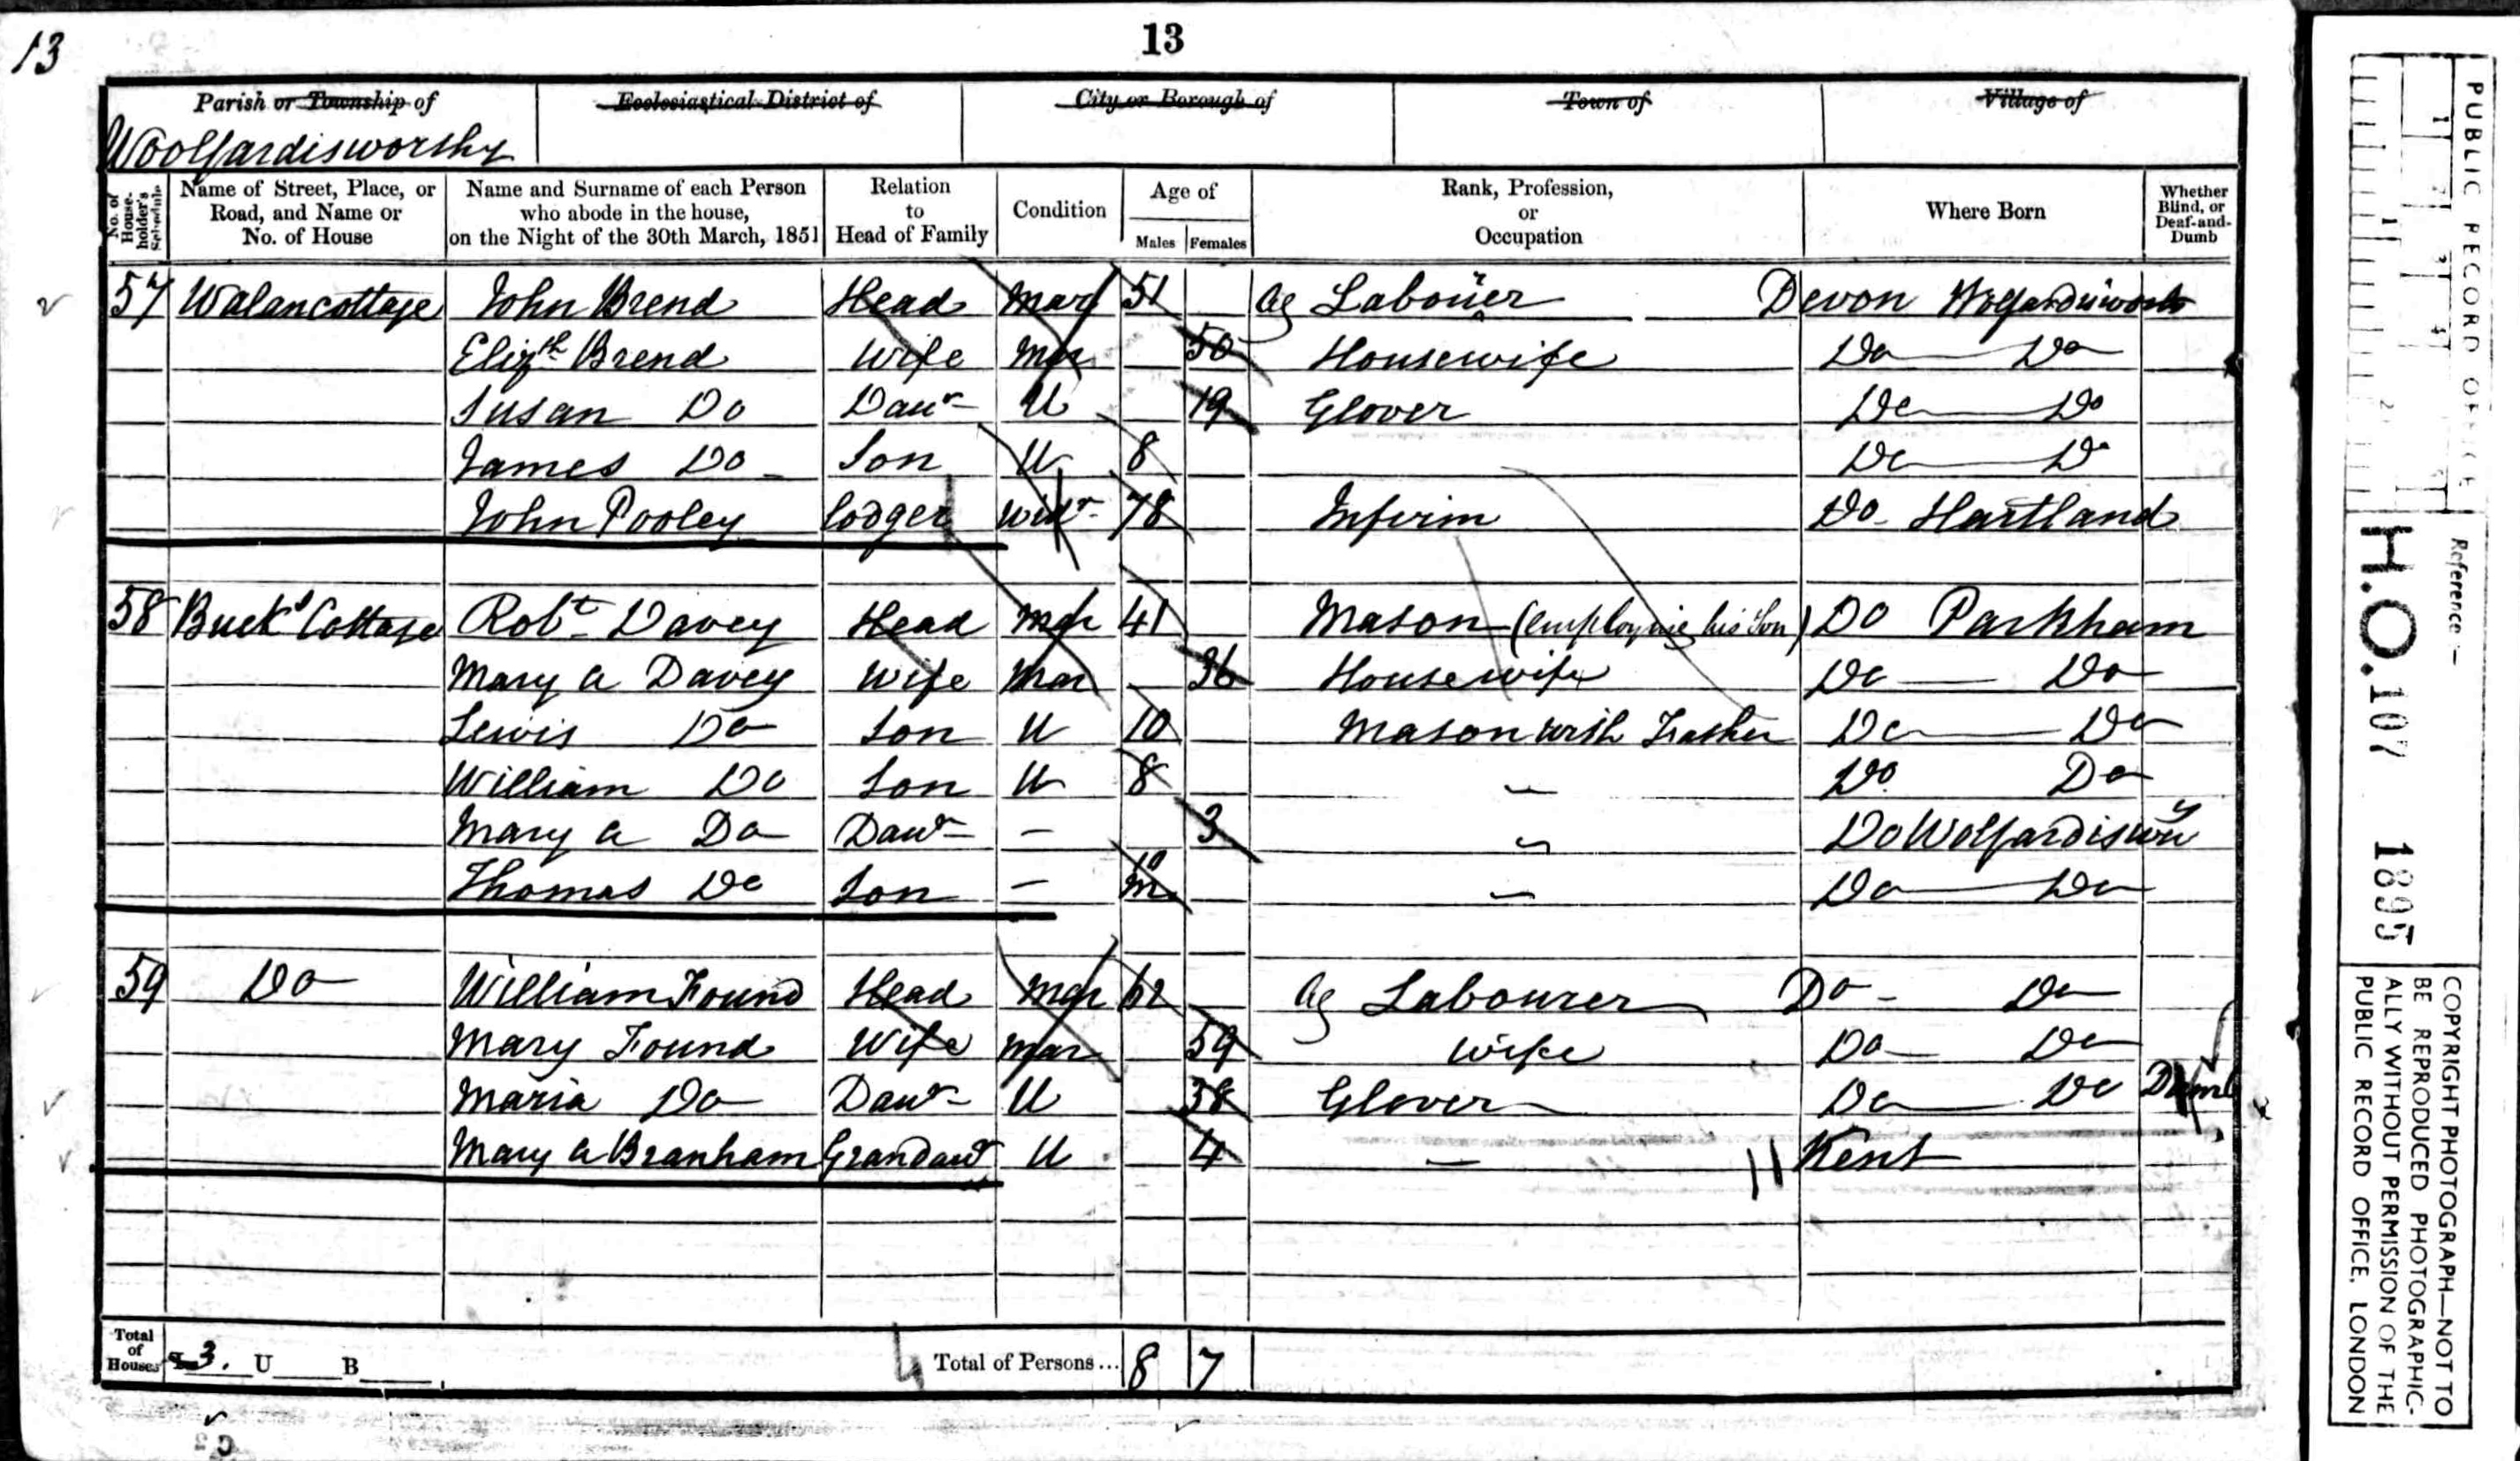 13
13
Parish or Township of
Woolfardisworthy
Ecclesiastical District of
City or Borough of
Town of
Village of
No. of House-holder's Schedule
Name of Street, Place, or Road, and Name or No. of House
Name and Surname of each Person who abode in the house, on the Night of the 30th March, 1851
Relation to Head of Family
Condition
Age of
Males
Females
Rank, Profession, or Occupation
Where Born
Whether Blind, or Deaf-and-Dumb
57 Walancottage John Brend Head Mar 51 Ag Labourer Devon
Elizth Brend Wife Mar 50 Housewife Do Do
Susan Do Daur U 19 Glover Do Do
James Do Son U 8 Do Do
John Pooley Lodger Widr 78 Infirim Do Hartland
58 Bucks Cottage Robt Davey Head Mar 41 Mason (employing his Son) Do Parkham
Mary A Davey Wife Mar 36 Housewife Do Do
Lewis Do Son U 10 Mason with Father Do Do
William Do Son U 8 Do Do
Mary A Do Daur - 3 Do
Thomas Do Son - 10 m Do Do
59 Do William Found Head Mar 62 Ag Labourer Do Do
Mary Found Wife Mar 59 wife Do Do
Maria Do Daur U 38 Glover Do Do Dumb
Mary A Branham Grandaur U 4 - Kent
Total of Houses I 3. U B
Total of Persons... 8 7
PUBLIC RECORD OFFICE
Reference :-
H.O. 107 1895
COPYRIGHT PHOTOGRAPH—NOT TO
BE REPRODUCED PHOTOGRAPHIC-
ALLY WITHOUT PERMISSION OF THE
PUBLIC RECORD OFFICE, LONDON